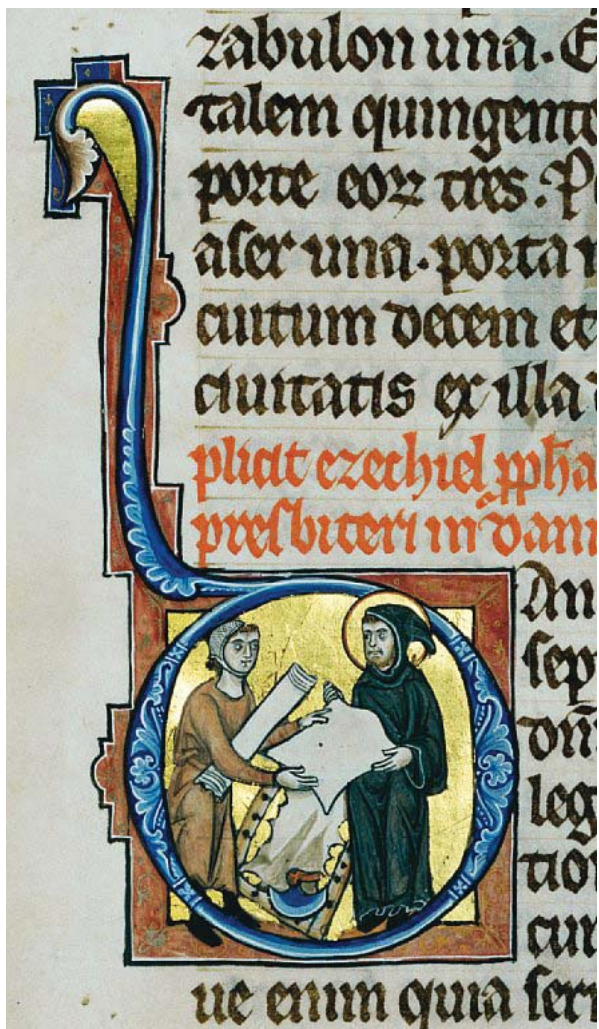 zabulon una. E
talem quingente
porte eoꝝ tres. P
aser una. porta
cuitum decem et
ciuitatis ex illa
plicit ezechiel pph̄a
presbiteri in dani
An
sep
dn̄i
leg
tion
cur
ue enim quia ser